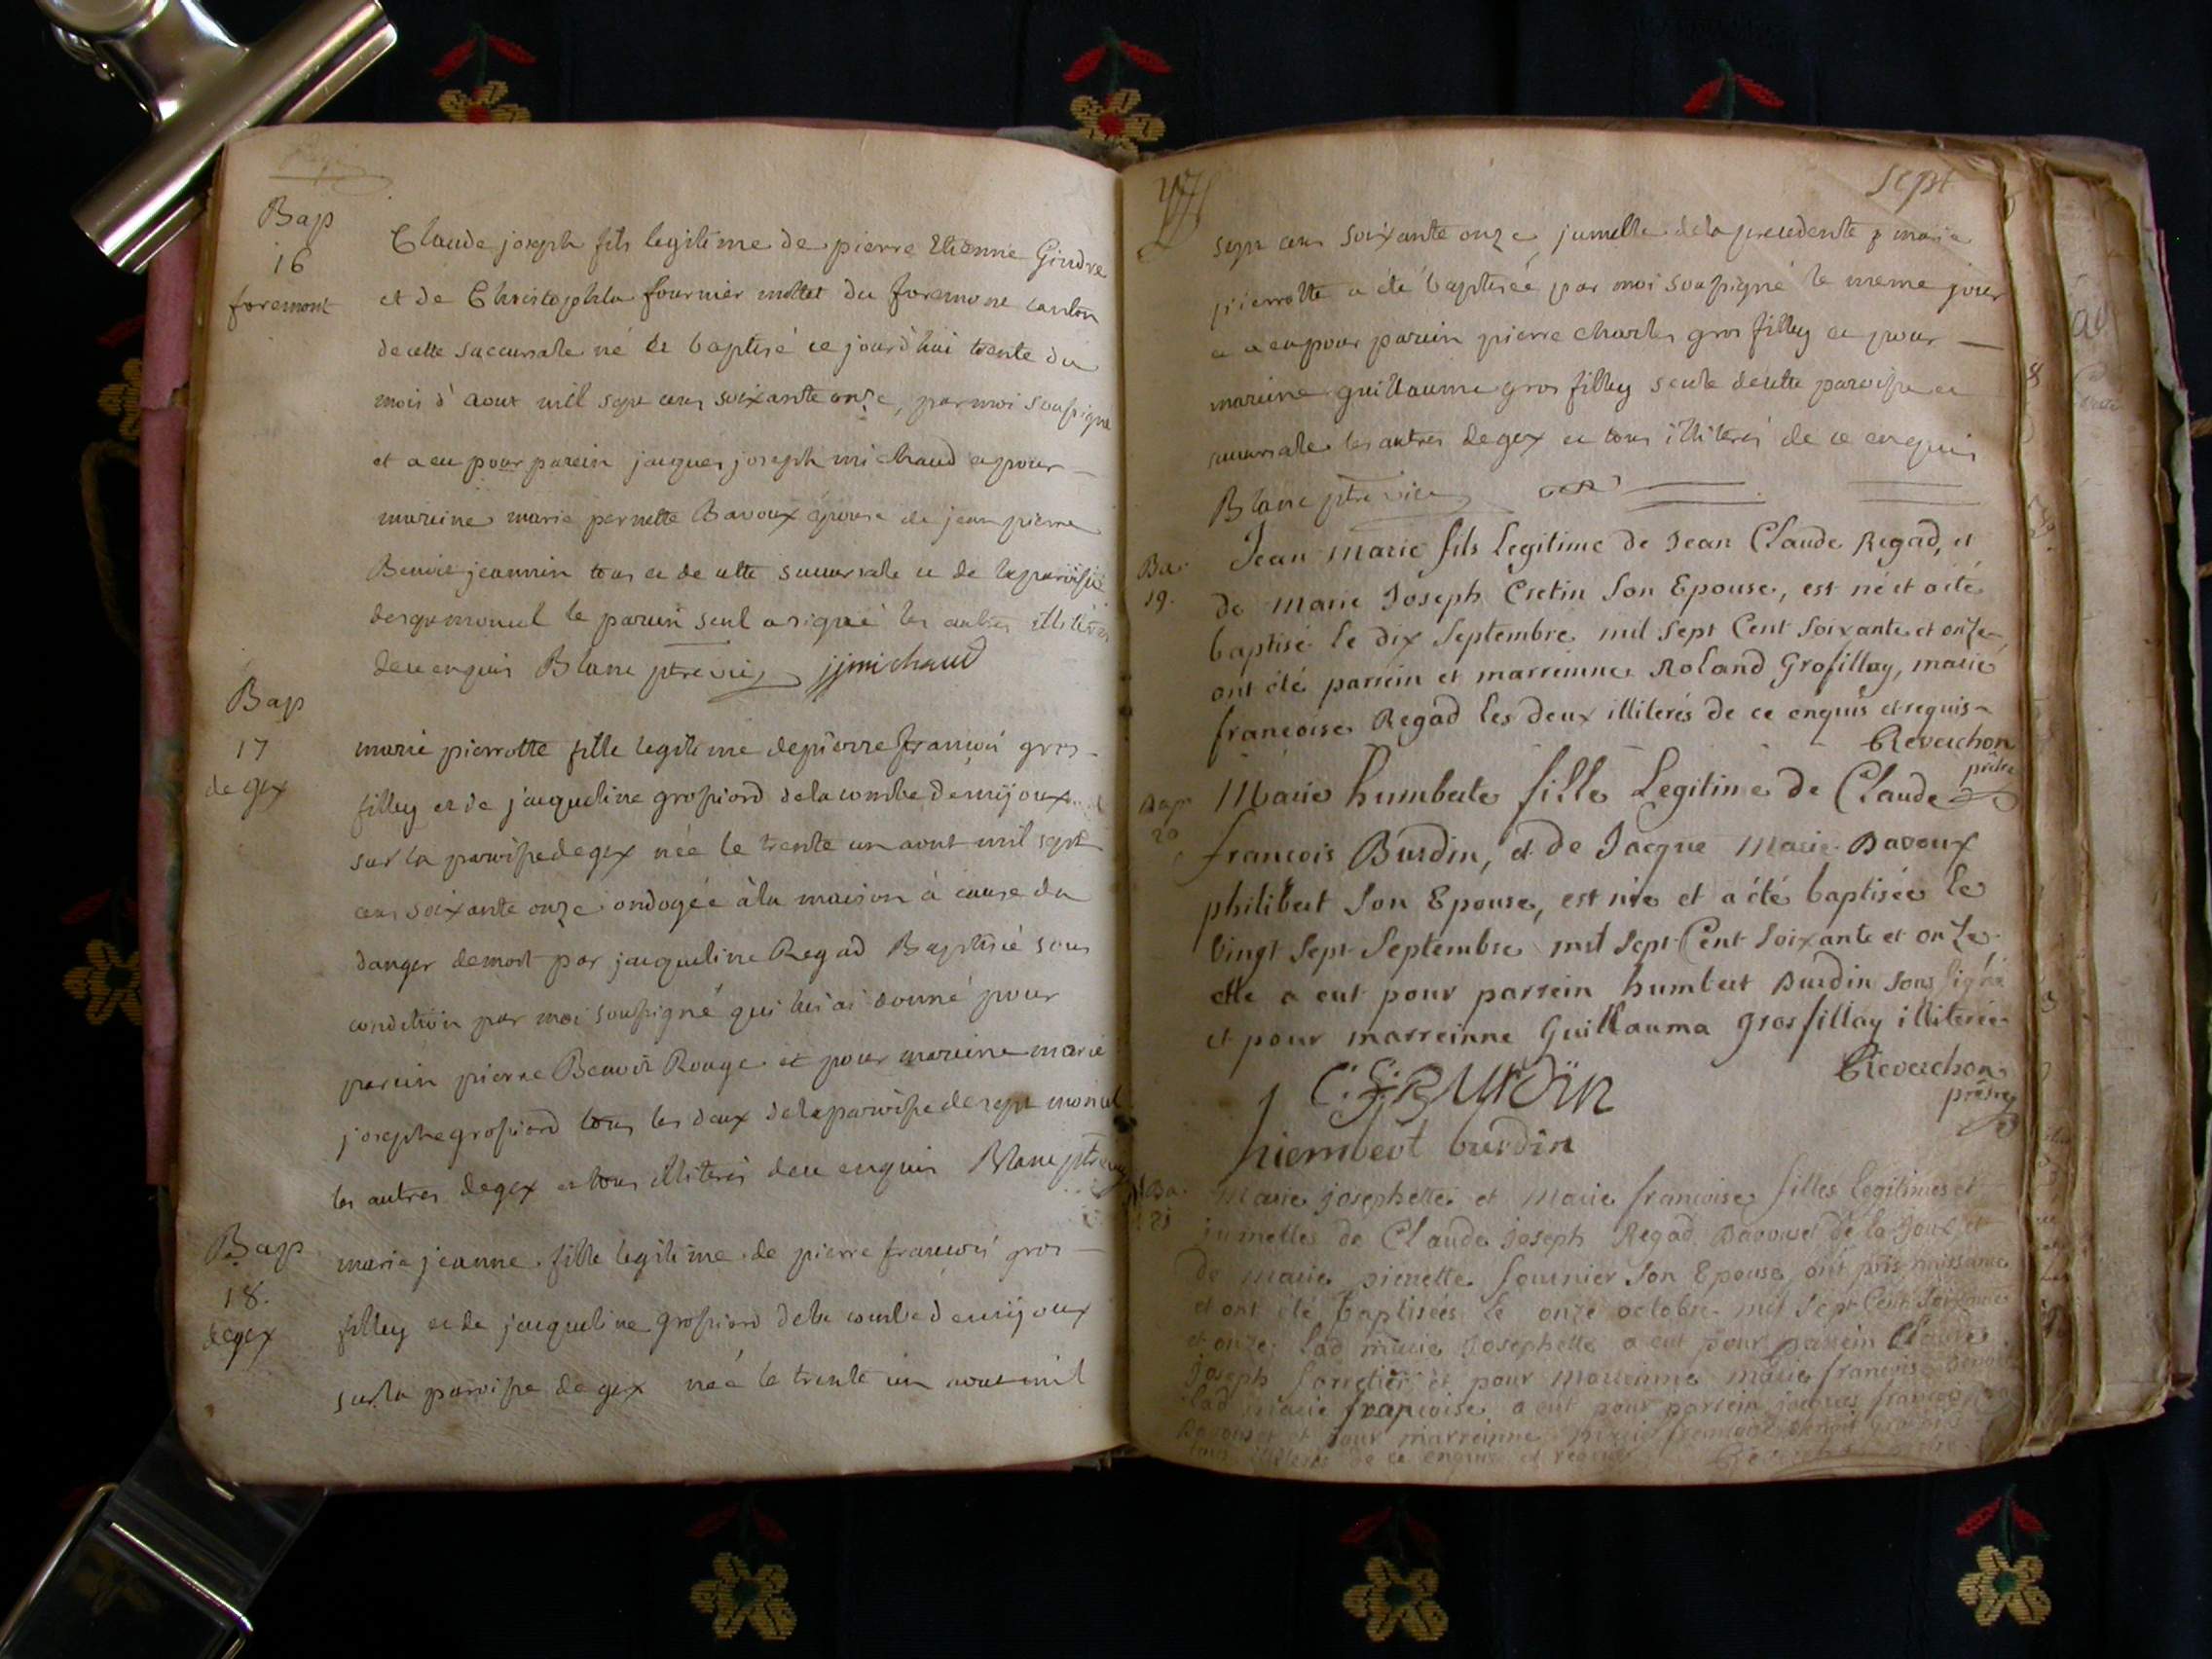 Bap
16
foremont
Claude joseph fils legitime de pierre Etienne Gindre
et de Christophla fournier mottet du foremont canton
de cette succursale né et baptisé ce jourd'hui trente du
mois d'aout mil sept cens soixante onze, par moi soussigné
et a eu pour parein jaques joseph michaud et pour
mareine marie pernette Bavoux épouse de jean pierre
Benoit jeannin tous ce de cette succursale et de la paroisse
de septmoncel le parein seul a signé les autres illiterés
de ce enquis Blanc ptre vic jjmichaud
Bap
17
de gex
marie pierrotte fille legitime de pierre françois gros
filley et de jacqueline grospiord de la combe de mijoux
sur la paroisse de gex née le trente un aout mil sept
cens soixante onze ondoyée à la maison à cause du
danger de mort par jacqueline Regad Baptisée sous
condition par moi soussigné qui lui ai donné pour
parein pierre Benoit Rouge et pour mareine marie
josephe grospiord tous les deux de la paroisse de sept moncel
les autres de gex et tous illiterés de ce enquis Blanc ptre
Bap
18.
de gex
marie jeanne fille legitime de pierre françois gros
filley et de jacqueline grospiord de la combe de mijoux
sur la paroisse de gex née le trente un aout mil
sept
sept cens soixante onze jumelle de la precedente marie
pierrotte a été baptisée par moi soussigné le meme jour
et a eu pour parein pierre charles gros filley et pour
mareine guillaume gros filley seule de cette paroisse et
succursale les autres de gex et tous illiterés de ce enquis
Blanc ptre vic
Ba.
19.
Jean marie fils Legitime de Jean Claude Regad, et
de marie Joseph Cretin Son Epouse, est né et a été
baptisé le dix Septembre mil Sept Cent Soixante et onze,
ont été parrein et marreinne Roland Grosfillay, marie
francoise Regad les deux illiterés de ce enquis et requis
Reverchon
prêtre
Bap
20
Marie humberte fille Legitime de Claude
francois Burdin, et de Jacque Marie Bavoux
philibert Son Epouse, est née et a été baptisée le
vingt Sept Septembre mil Sept Cent Soixante et onze
elle a eut pour parrein humbert Burdin sous signé
et pour marreinne Guillauma grosfillay illiterée
Reverchon
prêtre
C. F. BURDIN
hiembert burdin
Ba.
21
Marie josephette et Marie francoise filles legitimes et
jumelles de Claude Joseph Regad Bavouet de la Joux et
de marie pierrette fournier Son Epouse ont pris naissance
et ont été baptisées le onze octobre mil Sept Cent Soixante
et onze, lad marie Josephette a eut pour parrein Claude
Joseph et pour marreinne marie francoise benoit
lad marie francoise a eut pour parrein jacques francois
et pour marreinne marie francoise benoit
tous illiterés de ce enquis et requis